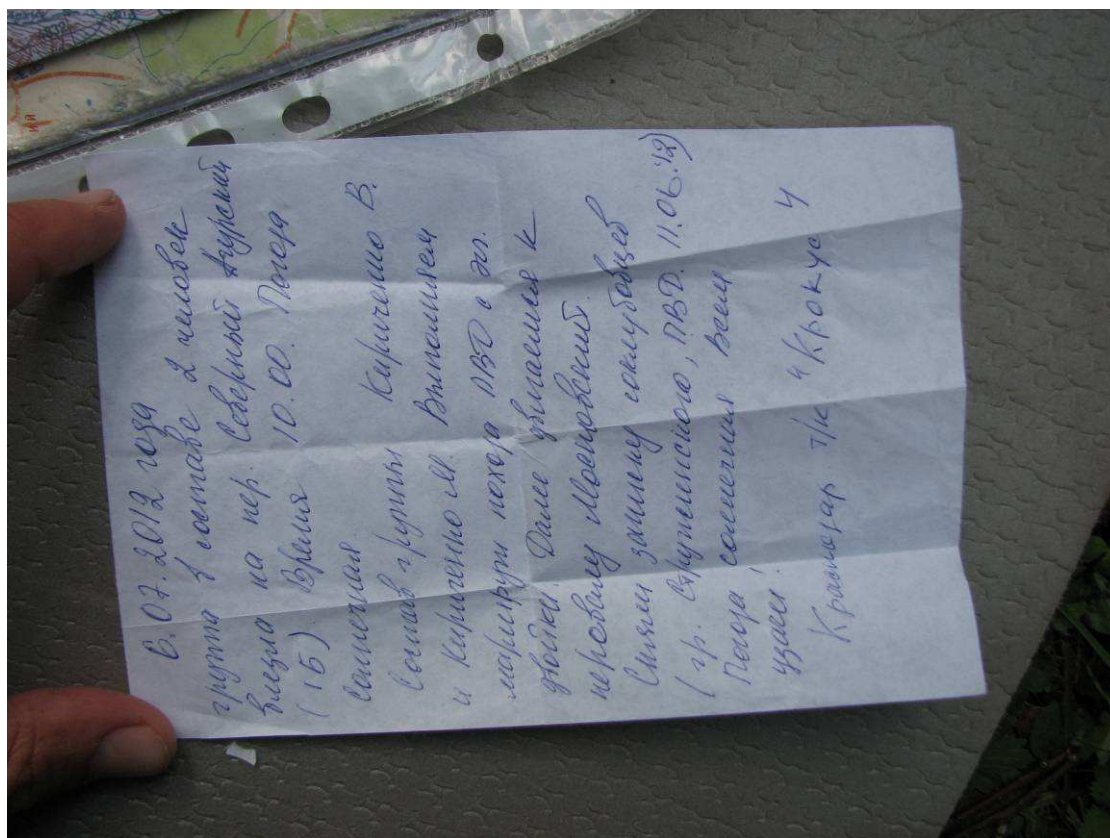 6.07.2012 года
группа в составе 2 человек
влезла на пер. Северный Ачурский
(1Б) Время 10.00. Погода
солнечная.
Состав группы Кириченко В.
и Кириченко М. Выполняем
маршрут похода ПВД с эл.
двойки. Далее двигаемся к
перевалу Мостовский.
Сняли записку соклубовцев
(гр. Стружинского, ПВД. 11.06.12)
Погода солнечная Всем
удачи!
Краснодар т/к "Крокус"
ий